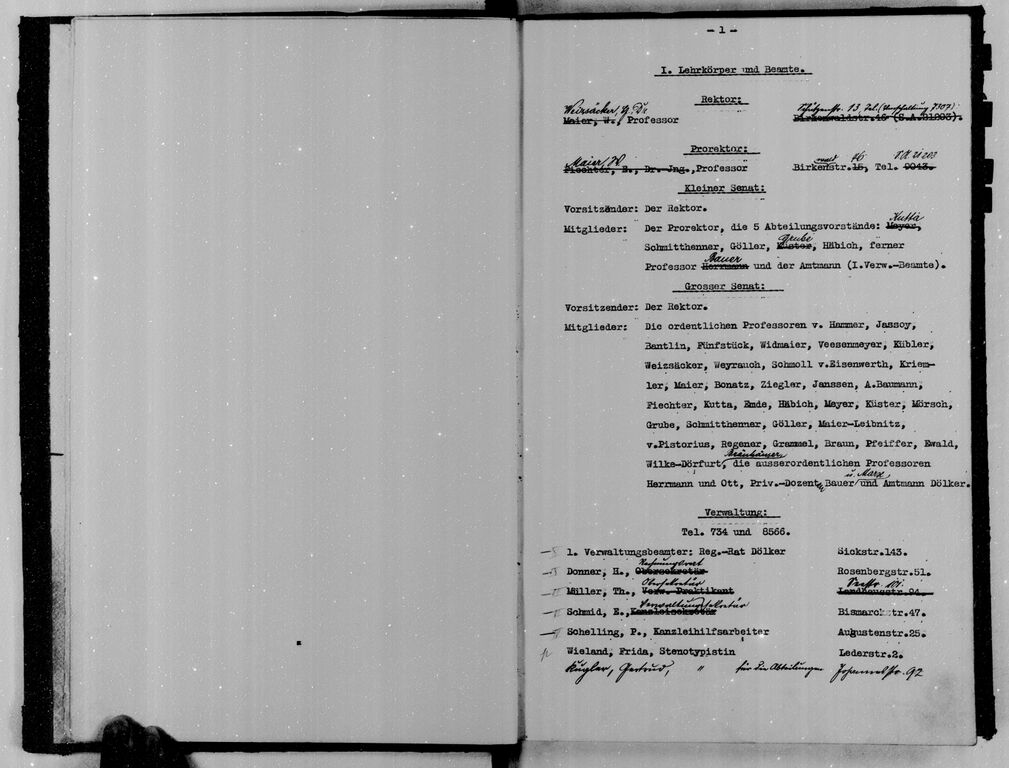 - 1 -
I. Lehrkörper und Beamte.
Rektor:
Weizsäcker, Dr. Schützenstr. 13, Tel. (7307)
Maier, W., Professor Birkenwaldstr.46 (S.A.21203).
Prorektor:
Maier, W. wald 46 S.A. 21203
Fiechter, E., Dr.-Jng.,Professor Birkenstr.15, Tel. 9043.
Kleiner Senat:
Vorsitzänder: Der Rektor.
Kutta
Mitglieder: Der Prorektor, die 5 Abteilungsvorstände: Meyer,
Grube
Schmitthenner, Göller, Küster, Häbich, ferner
Bauer
Professor Herrmann und der Amtmann (I.Verw.-Beamte).
Grosser Senat:
Vorsitzender: Der Rektor.
Mitglieder: Die ordentlichen Professoren v. Hammer, Jassoy,
Bantlin, Fünfstück, Widmaier, Veesenmeyer, Kübler,
Weizsäcker, Weyrauch, Schmoll v.Eisenwerth, Kriem-
ler, Maier, Bonatz, Ziegler, Janssen, A.Baumann,
Fiechter, Kutta, Emde, Häbich, Meyer, Küster, Mörsch,
Grube, Schmitthenner, Göller, Maier-Leibnitz,
v.Pistorius, Regener, Grammel, Braun, Pfeiffer, Ewald,
Bräuhäuser
Wilke-Dörfurt, die ausserordentlichen Professoren
u. Marx
Herrmann und Ott, Priv.-Dozenten Bauer und Amtmann Dölker.
Verwaltung:
Tel. 734 und 8566.
1. Verwaltungsbeamter: Reg.-Rat Dölker Sickstr.143.
Rechnungsrat
Donner, H., Obersekretär Rosenbergstr.51.
Obersekretär Seestr. 101.
Müller, Th., Verw. Praktikant Landhausstr.94.
Verwaltungssekretär
Schmid, E.,Kanzleisekretär Bismarckstr.47.
Schelling, P., Kanzleihilfsarbeiter Augustenstr.25.
Wieland, Frida, Stenotypistin Lederstr.2.
Kügler, Gertrud, " für die Abteilungen Johannesstr. 92